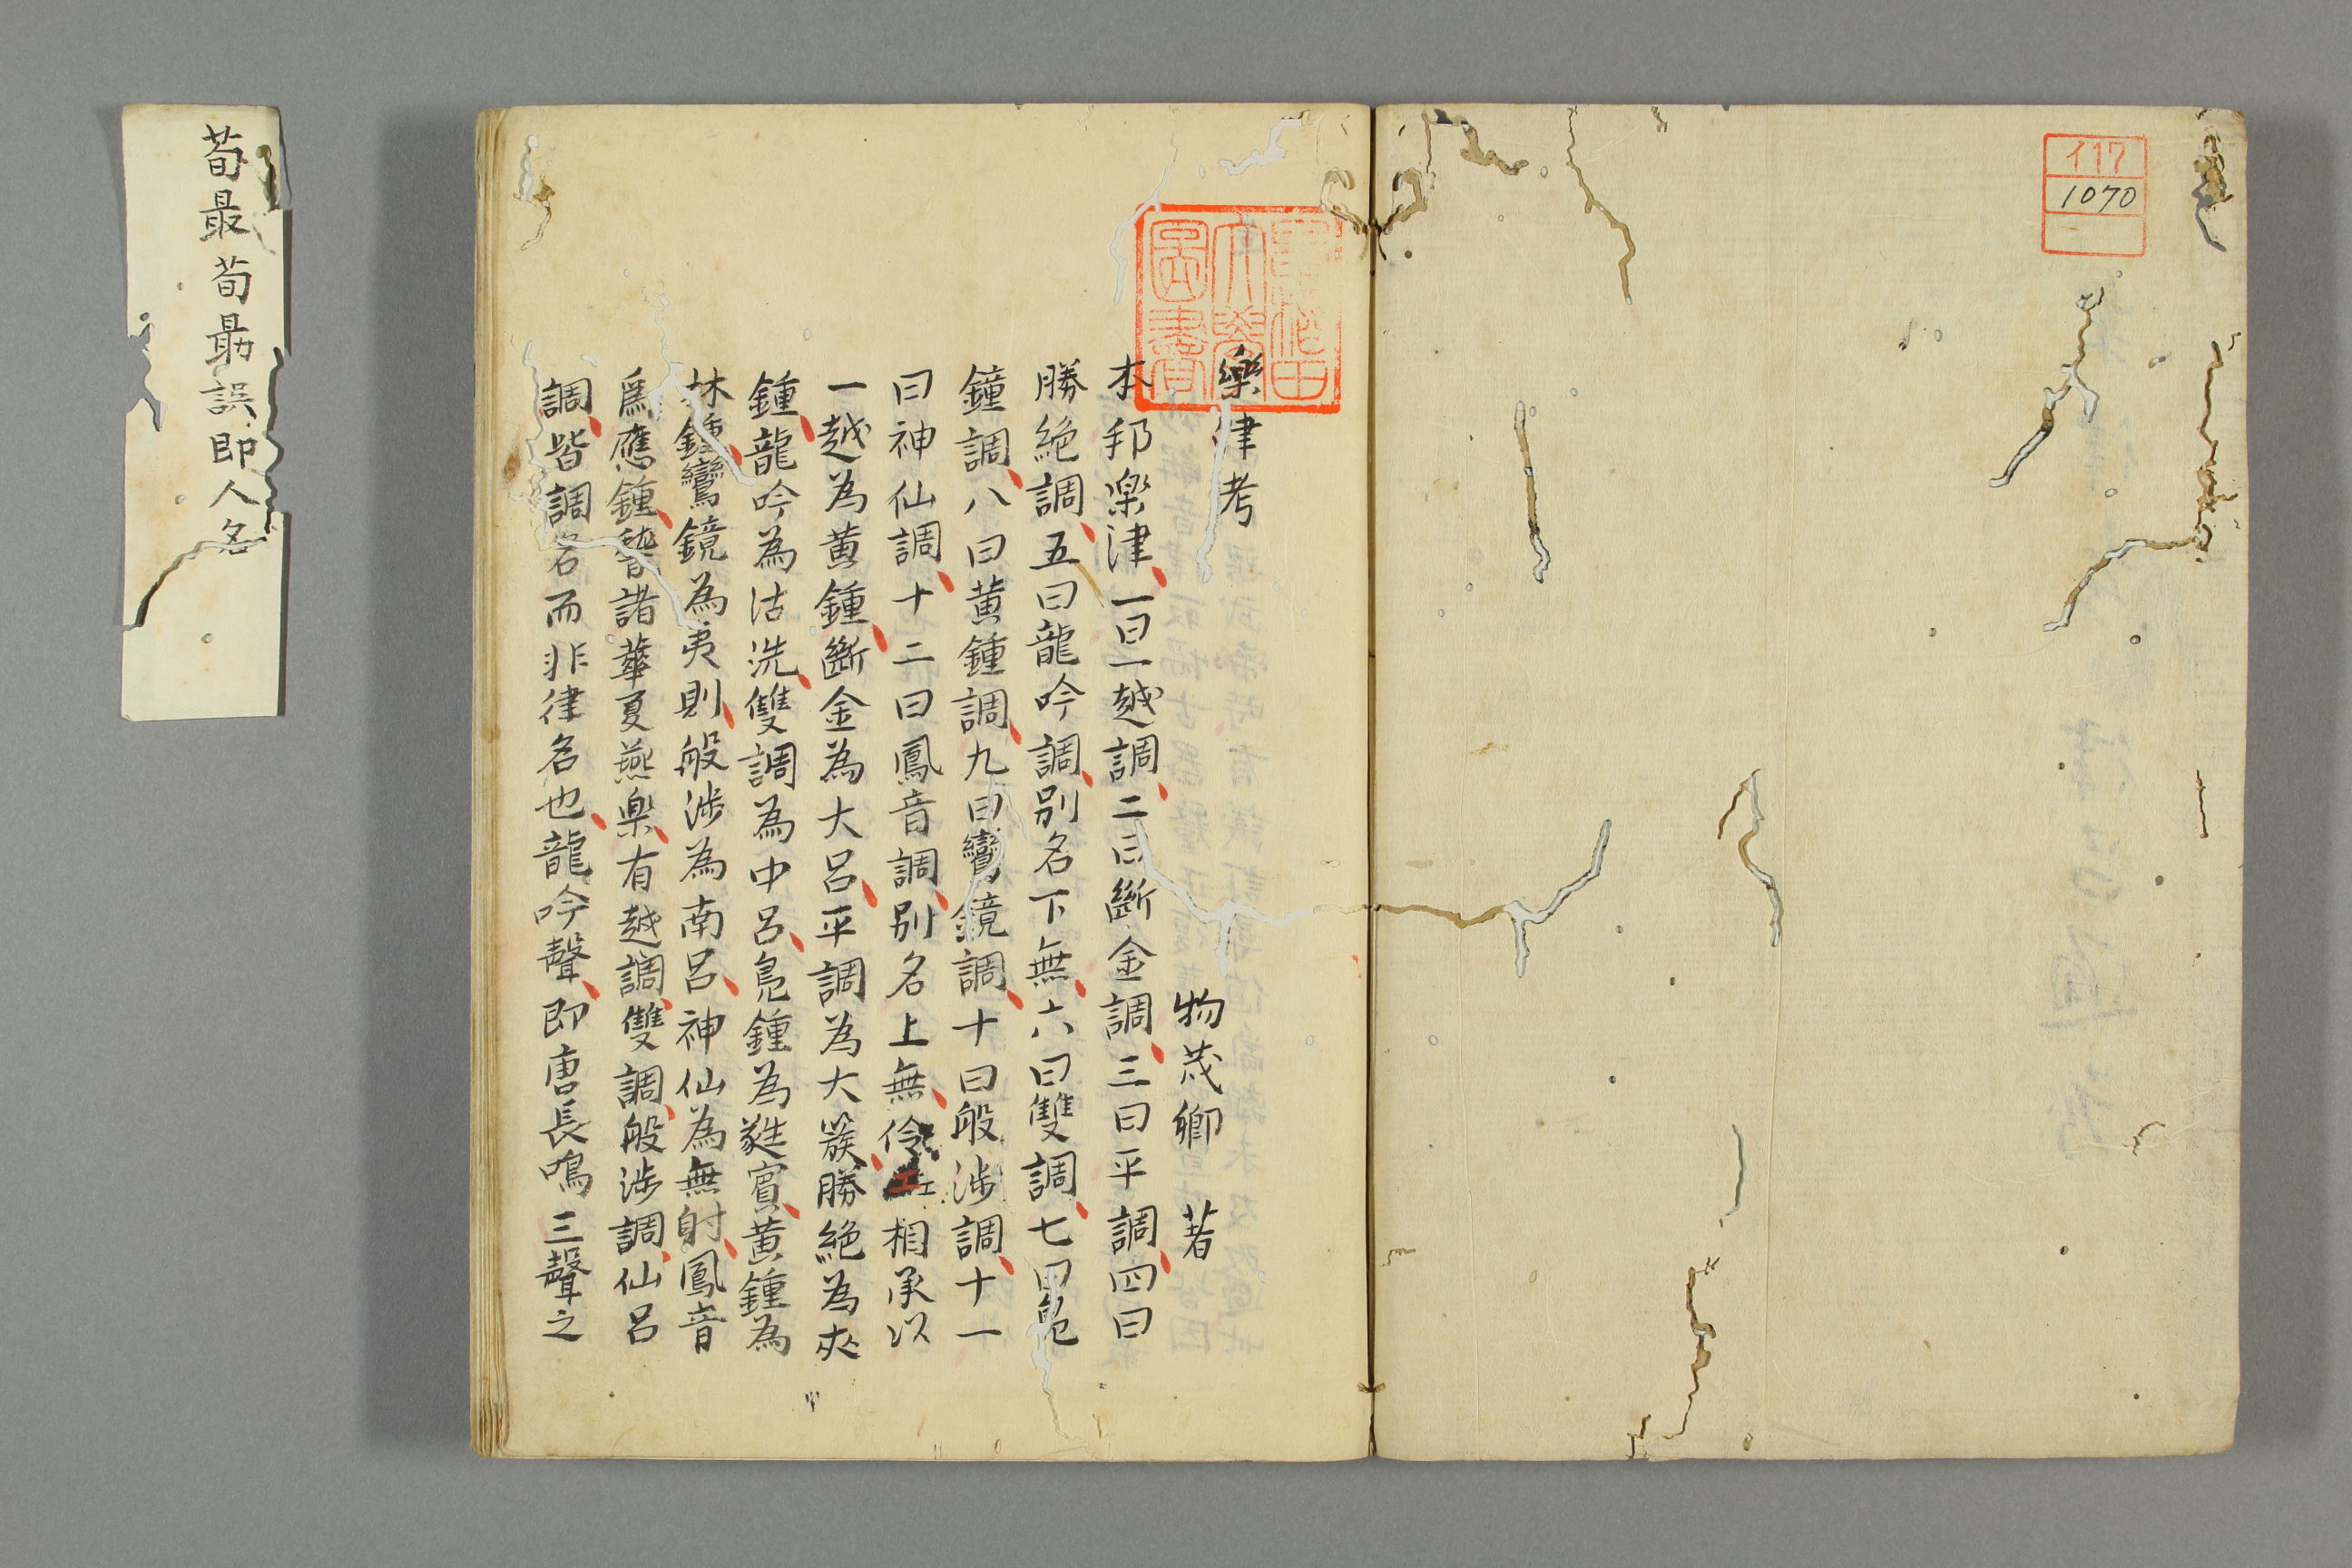 イ17
1070
早稲田
大學
圖書
樂律考
物茂卿 著
本邦楽津一曰一越調二曰斷金調三曰平調四曰
勝絶調五曰龍吟調別名下無六曰雙調七曰鳬
鐘調八曰黄鍾調九曰鸞鏡調十曰般渉調十一
曰神仙調十二曰鳳音調別名上無伶工相承以
一越為黄鍾斷金為大呂平調為大簇勝絶為夾
鍾龍吟為沽洗雙調為中呂鳬鍾為蕤賓黄鍾為
林鍾鸞鏡為夷則般渉為南呂神仙為無射鳳音
爲應鍾諸華夏燕楽有越調雙調般渉調仙呂
調皆調名而非律名也龍吟聲即唐長鳴三聲之
荀最荀勗誤即人名